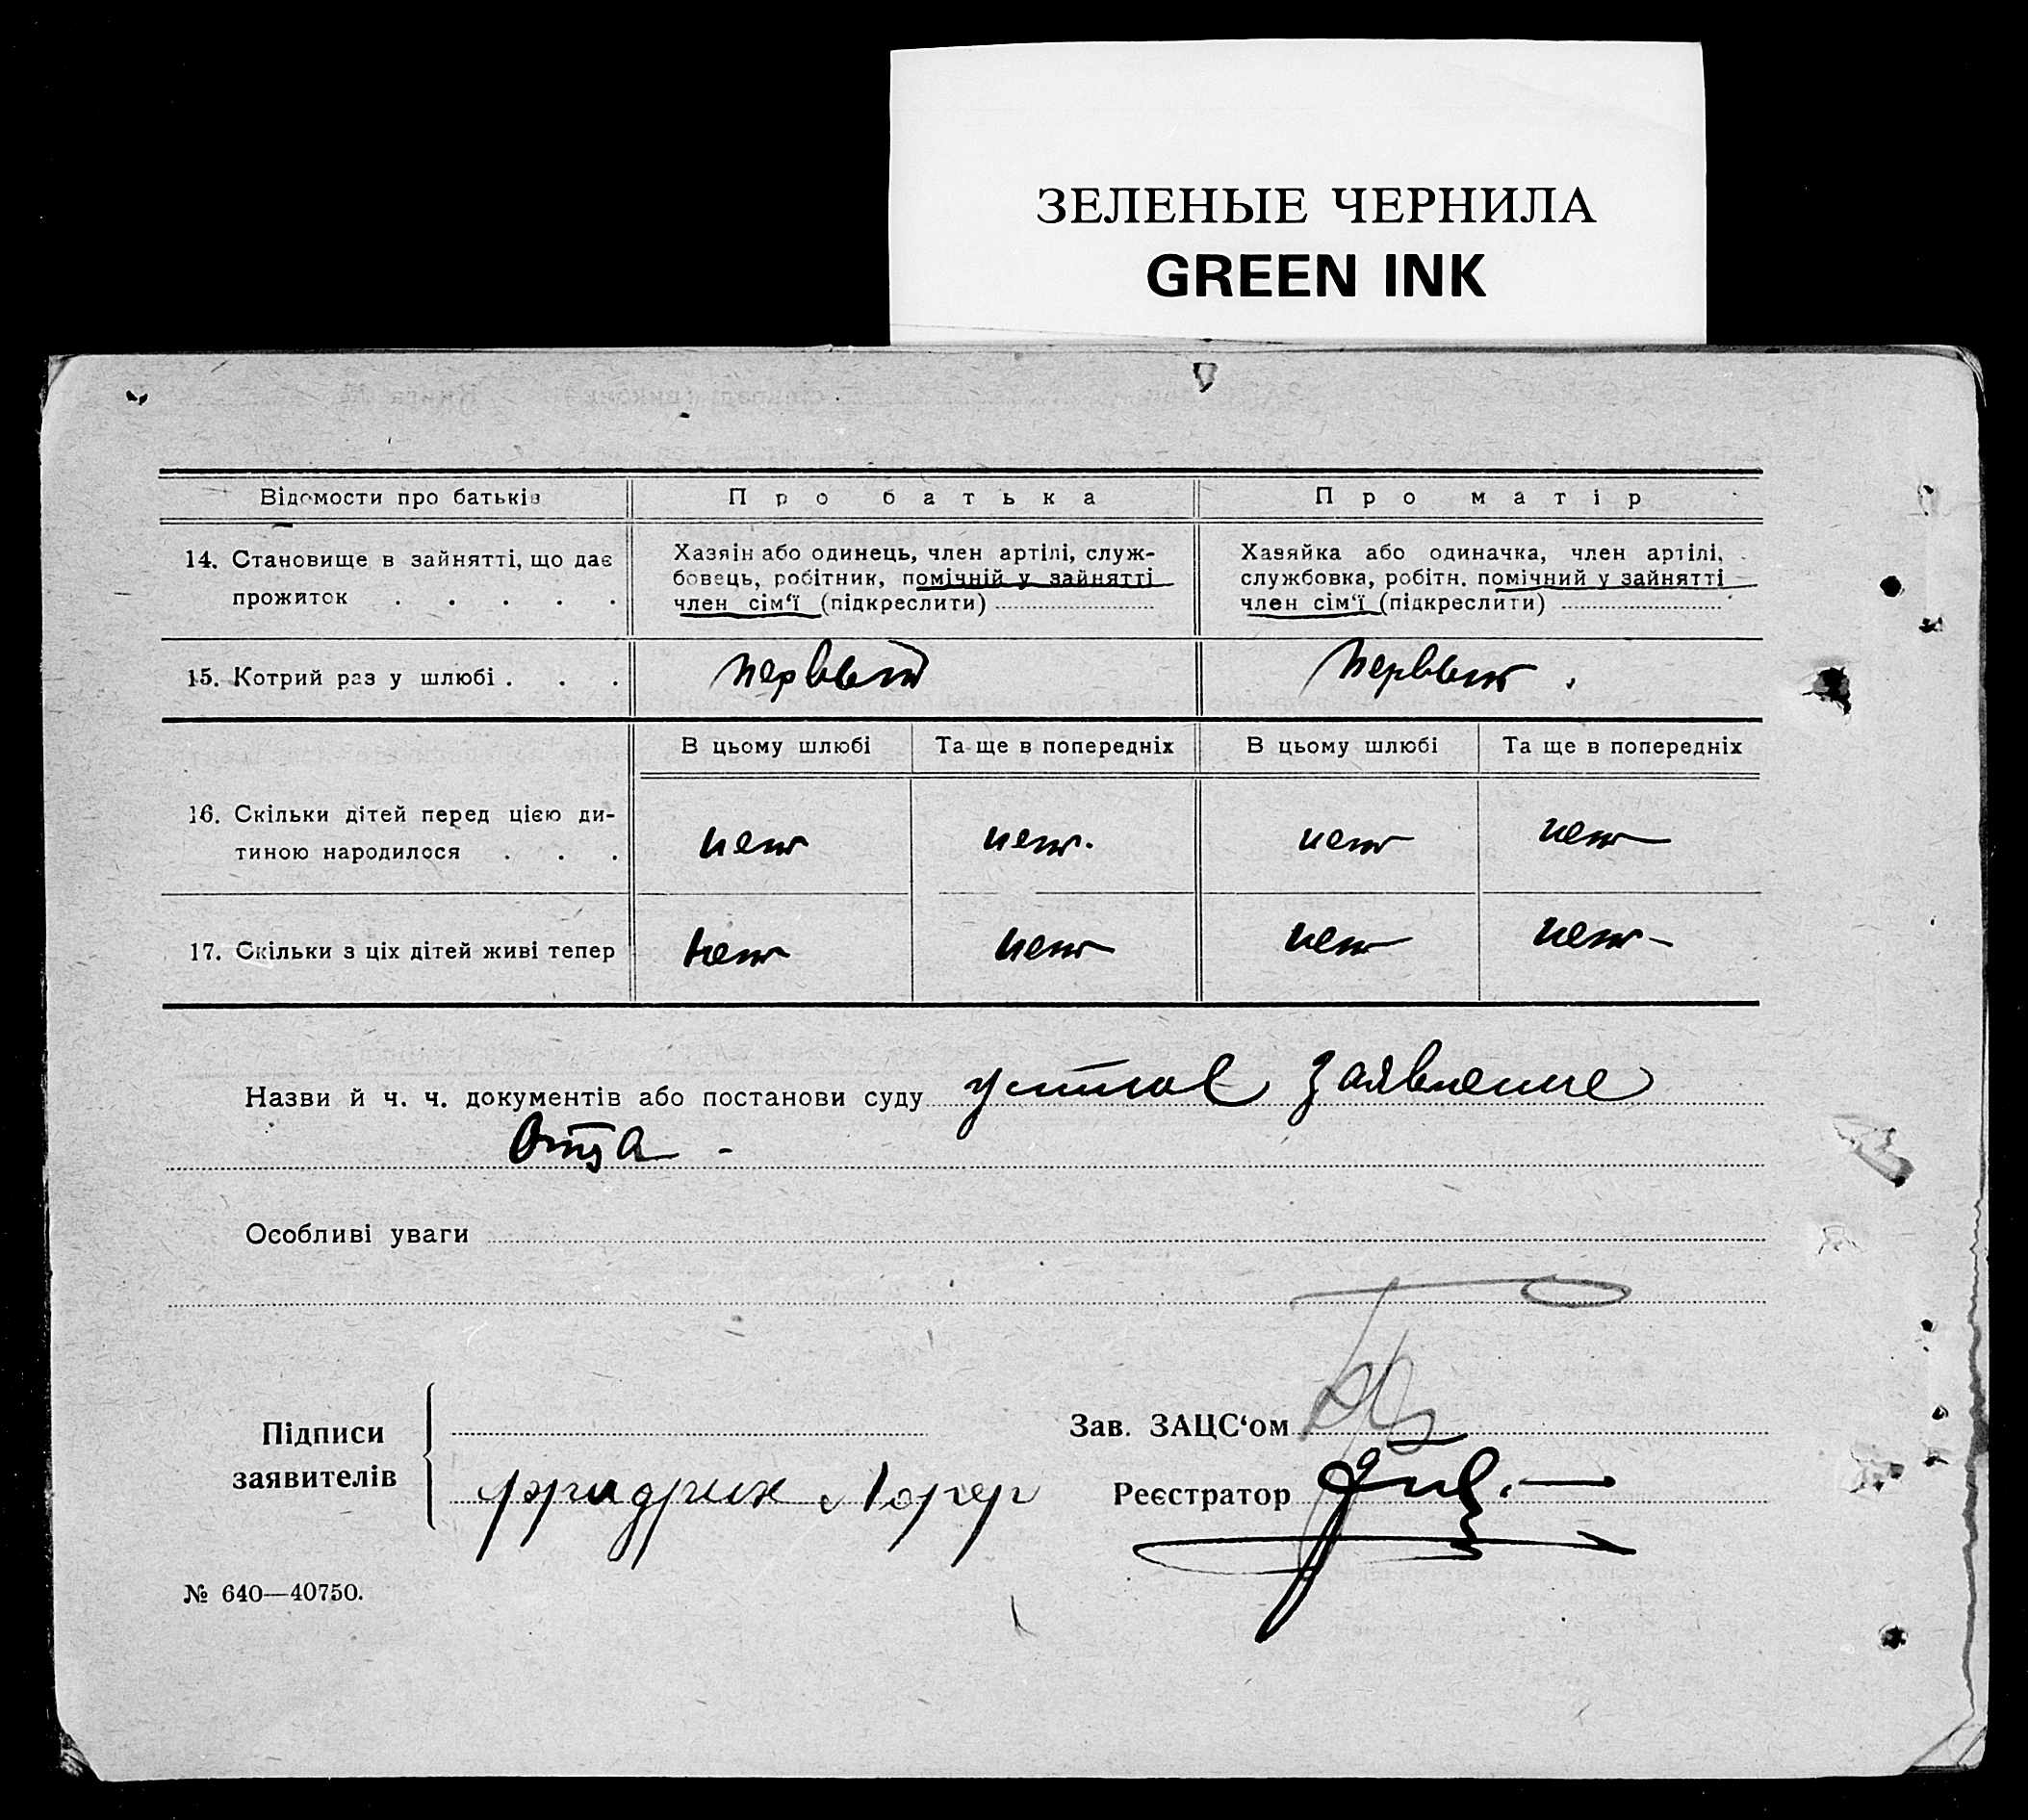 ЗЕЛЕНЫЕ ЧЕРНИЛА
GREEN INK
Відомости про батьків
Про батька
Про матір
14. Становище в зайнятті, що дає
прожиток . . . . .
Хазяін або одинець, член артілі, служ-
бовець, робітник, помічній у зайнятті
член сім‘ї (підкреслити)
Хазяйка або одиначка, член артілі,
службовка, робітн. помічний у зайнятті
член сім‘ї (підкреслити)
15. Котрий раз у шлюбі . . .
первый
первый
В цьому шлюбі
Та ще в попередніх
В цьому шлюбі
Та ще в попередніх
16. Скільки дітей перед цією ди-
тиною народилося . . .
нет
нет.
нет
нет
17. Скільки з ціх дітей живі тепер
нет
нет
нет
нет
Назви й ч. ч. документів або постанови суду устное заявление
отца -
Особливі уваги
Підписи
заявителів
Фридрих Лорер
Зав. ЗАЦС‘ом
Реєстратор
№ 640—40750.